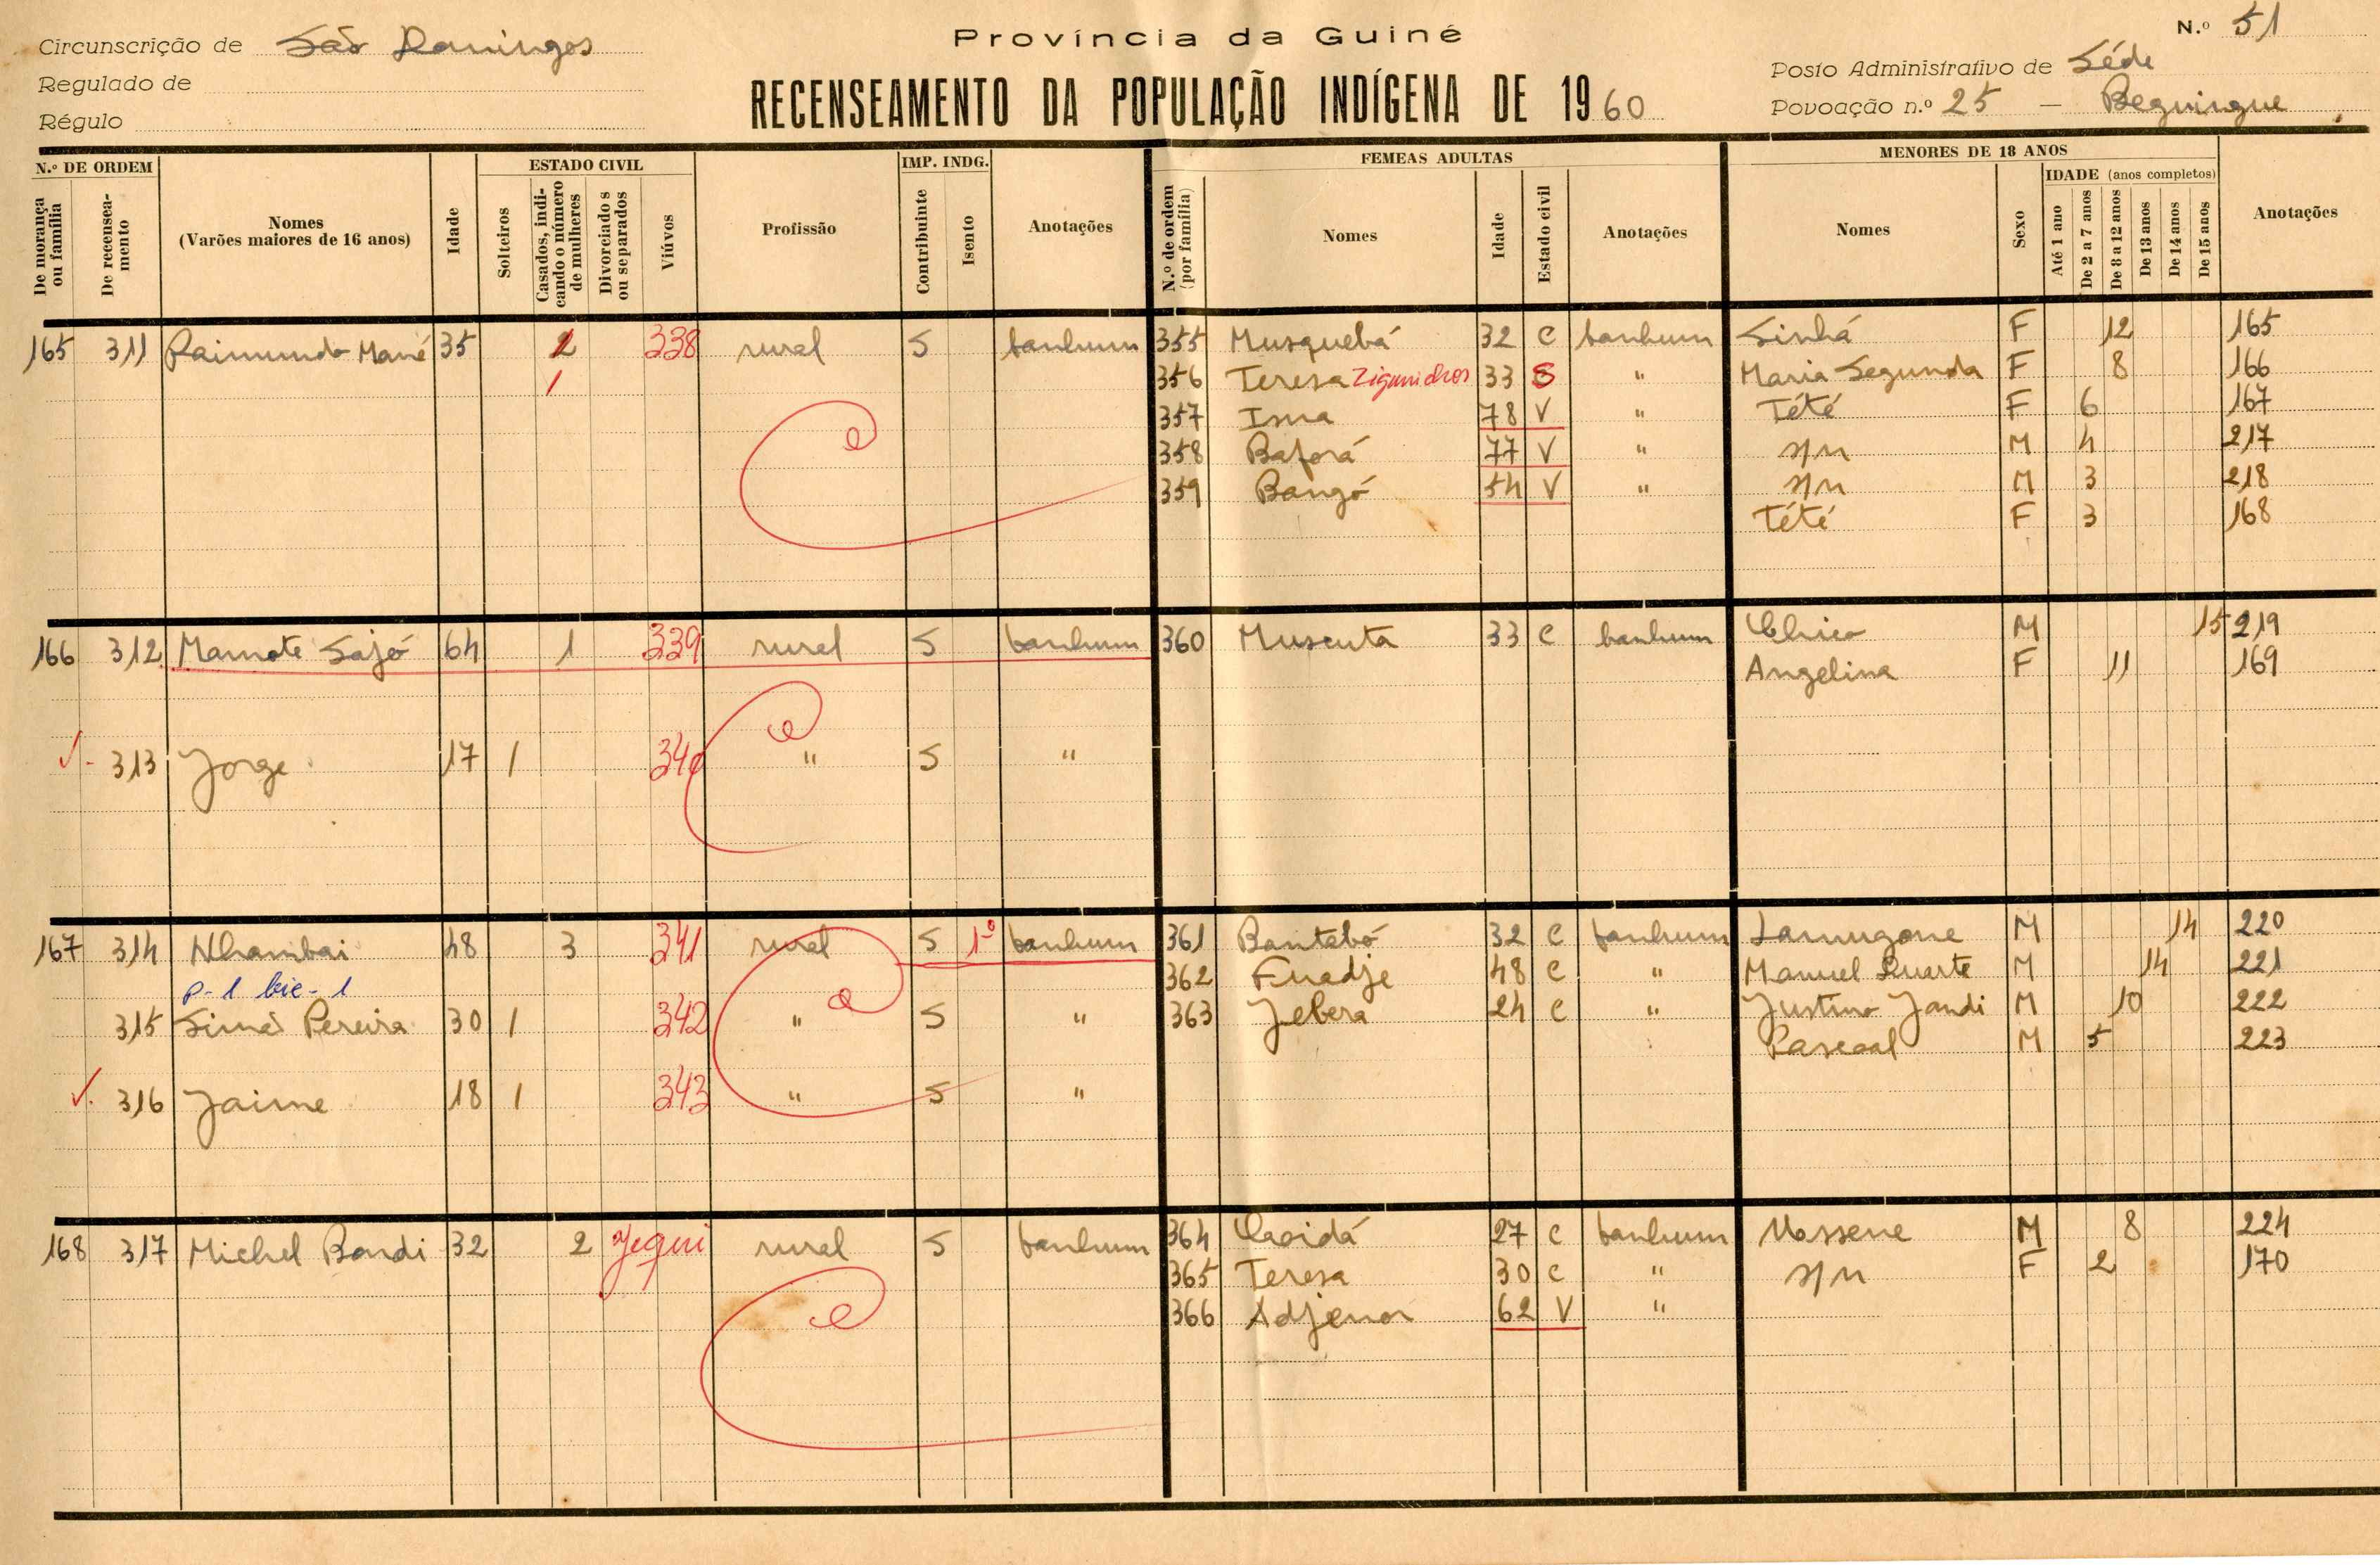 Circunscrição de São Domingos
Regulado de
Régulo
Província da Guiné
RECENSEAMENTO DA POPULAÇÃO INDÍGENA DE 1960
N.º 51
Posto Administrativo de Séde
Povoação n.º 25 — Beguingue
N.º DE ORDEM
De morança ou família
De recensea-mento
Nomes
(Varões maiores de 16 anos)
Idade
ESTADO CIVIL
Solteiros
Casados, indi-cando o número de mulheres
Divorciados ou separados
Viúvos
Profissão
IMP. INDG.
Contribuinte
Isento
Anotações
FEMEAS ADULTAS
N.º de ordem (por família)
Nomes
Idade
Estado civil
Anotações
MENORES DE 18 ANOS
Nomes
Sexo
IDADE (anos completos)
Até 1 ano
De 2 a 7 anos
De 8 a 12 anos
De 13 anos
De 14 anos
De 15 anos
Anotações
165 311 Raimundo Mané 35 2 338 rural S banhum 355 Musquebá 32 C banhum Sinhá F 12 165
1 356 Teresa 33 S " Maria Segunda F 8 166
357 Isna 78 V " Tété F 6 167
358 Baforá 77 V " s/n M 4 217
359 Bangó 54 V " s/n M 3 218
Tété F 3 168
166 312 Mamote Sajó 64 1 339 rural S banhum 360 Muscuta 33 C banhum Chico M 15 219
Angelina F 11 169
313 Jorge 17 1 340 " S "
167 314 Nhambai 48 3 341 rural S 1º banhum 361 Bantabó 32 C banhum Lamugone M 14 220
p-1 bic-1 362 Fuadje 48 C " Manuel Duarte M 14 221
315 Simão Pereira 30 1 342 " S " 363 Jebera 24 C " Justino Jandi M 10 222
Pascoal M 5 223
316 Jaime 18 1 343 " S "
168 317 Michel Bandi 32 2 Jequi rural S banhum 364 27 C banhum Mossene M 8 224
365 Teresa 30 C " s/n F 2 170
366 Adjenor 62 V "